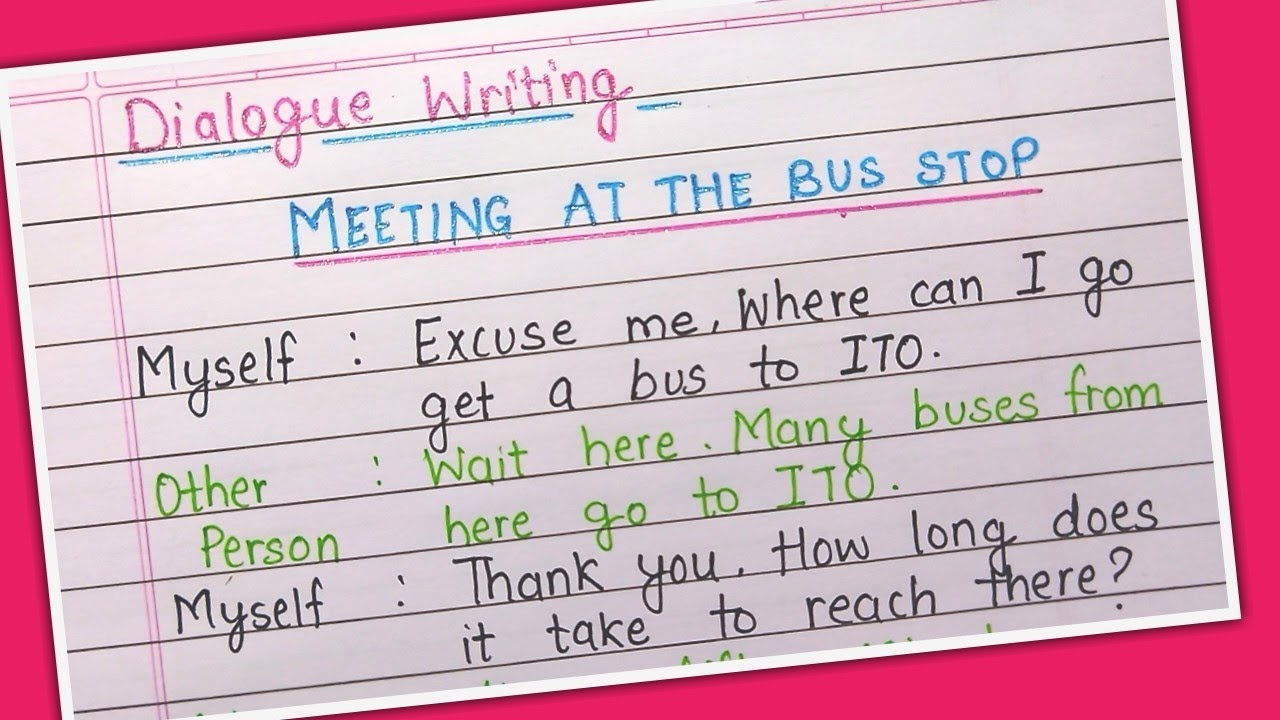 Dialogue Writing
MEETING AT THE BUS STOP
Myself : Excuse me, Where can I go
get a bus to ITO.
Other : Wait here. Many buses from
Person here go to ITO.
Myself : Thank you. How long does
it take to reach there?